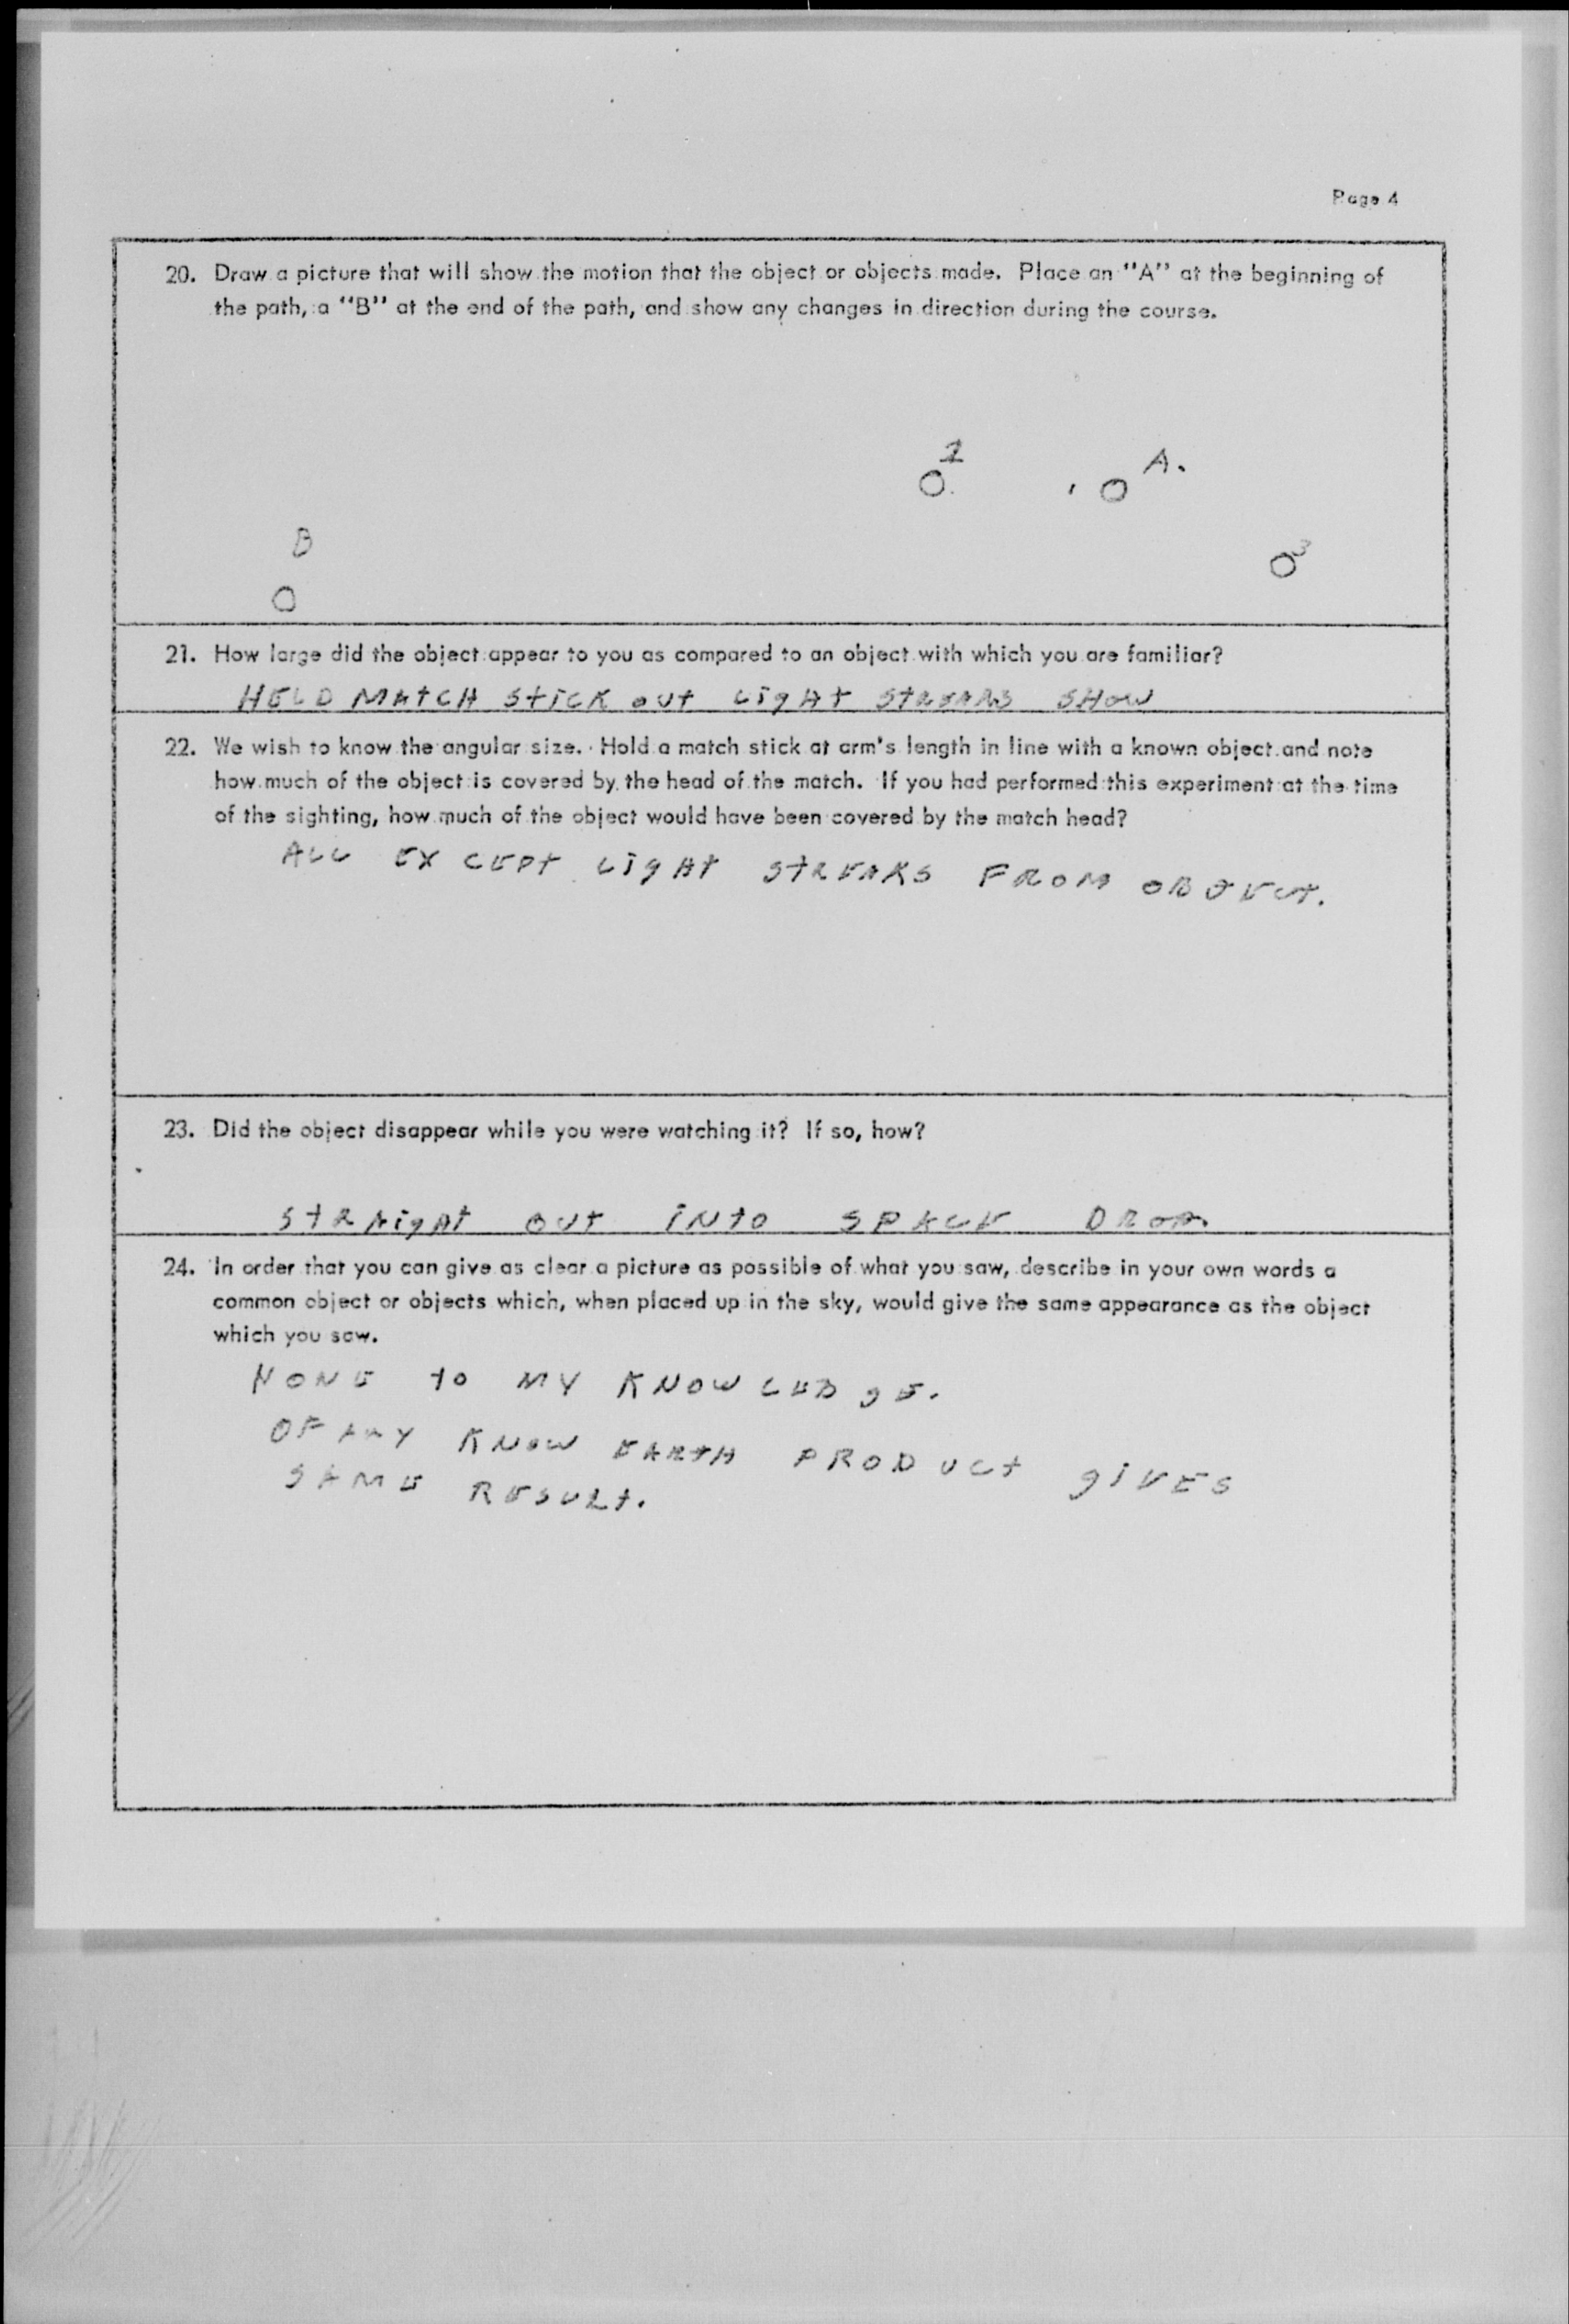 Page 4
20. Draw a picture that will show the motion that the object or objects made. Place an "A" at the beginning of
the path, a "B" at the end of the path, and show any changes in direction during the course.
A.
B
3
21. How large did the object appear to you as compared to an object with which you are familiar?
HELD MAtCH StiCK out LigHt StREAKS SHOW
22. We wish to know the angular size. Hold a match stick at arm's length in line with a known object and note
how much of the object is covered by the head of the match. If you had performed this experiment at the time
of the sighting, how much of the object would have been covered by the match head?
ALL EXCEPt LigHt StREAKS FROM OBJECt.
23. Did the object disappear while you were watching it? If so, how?
StRAigHt OUt iNtO SPACE DROP.
24. In order that you can give as clear a picture as possible of what you saw, describe in your own words a
common object or objects which, when placed up in the sky, would give the same appearance as the object
which you saw.
NONE to MY KNOWLEDgE.
OF ANY KNOW EARtH PRODUCt giVES
SAME RESULt.